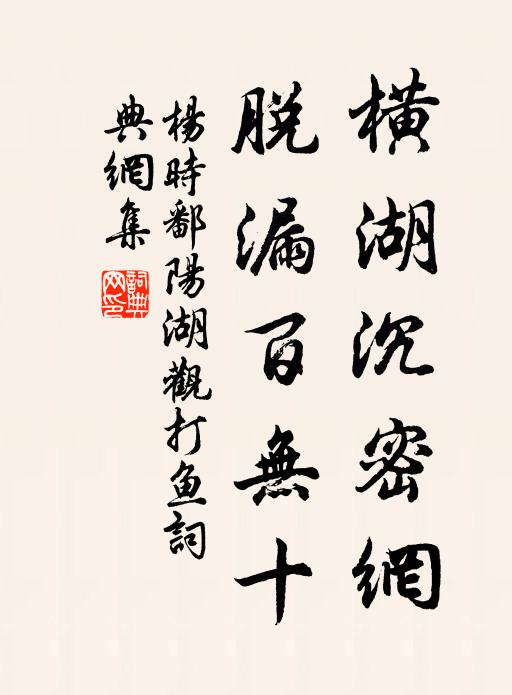 橫湖沉密網
脫漏百無十
楊時鄱陽湖觀打鱼詞
典網集
詞典網印